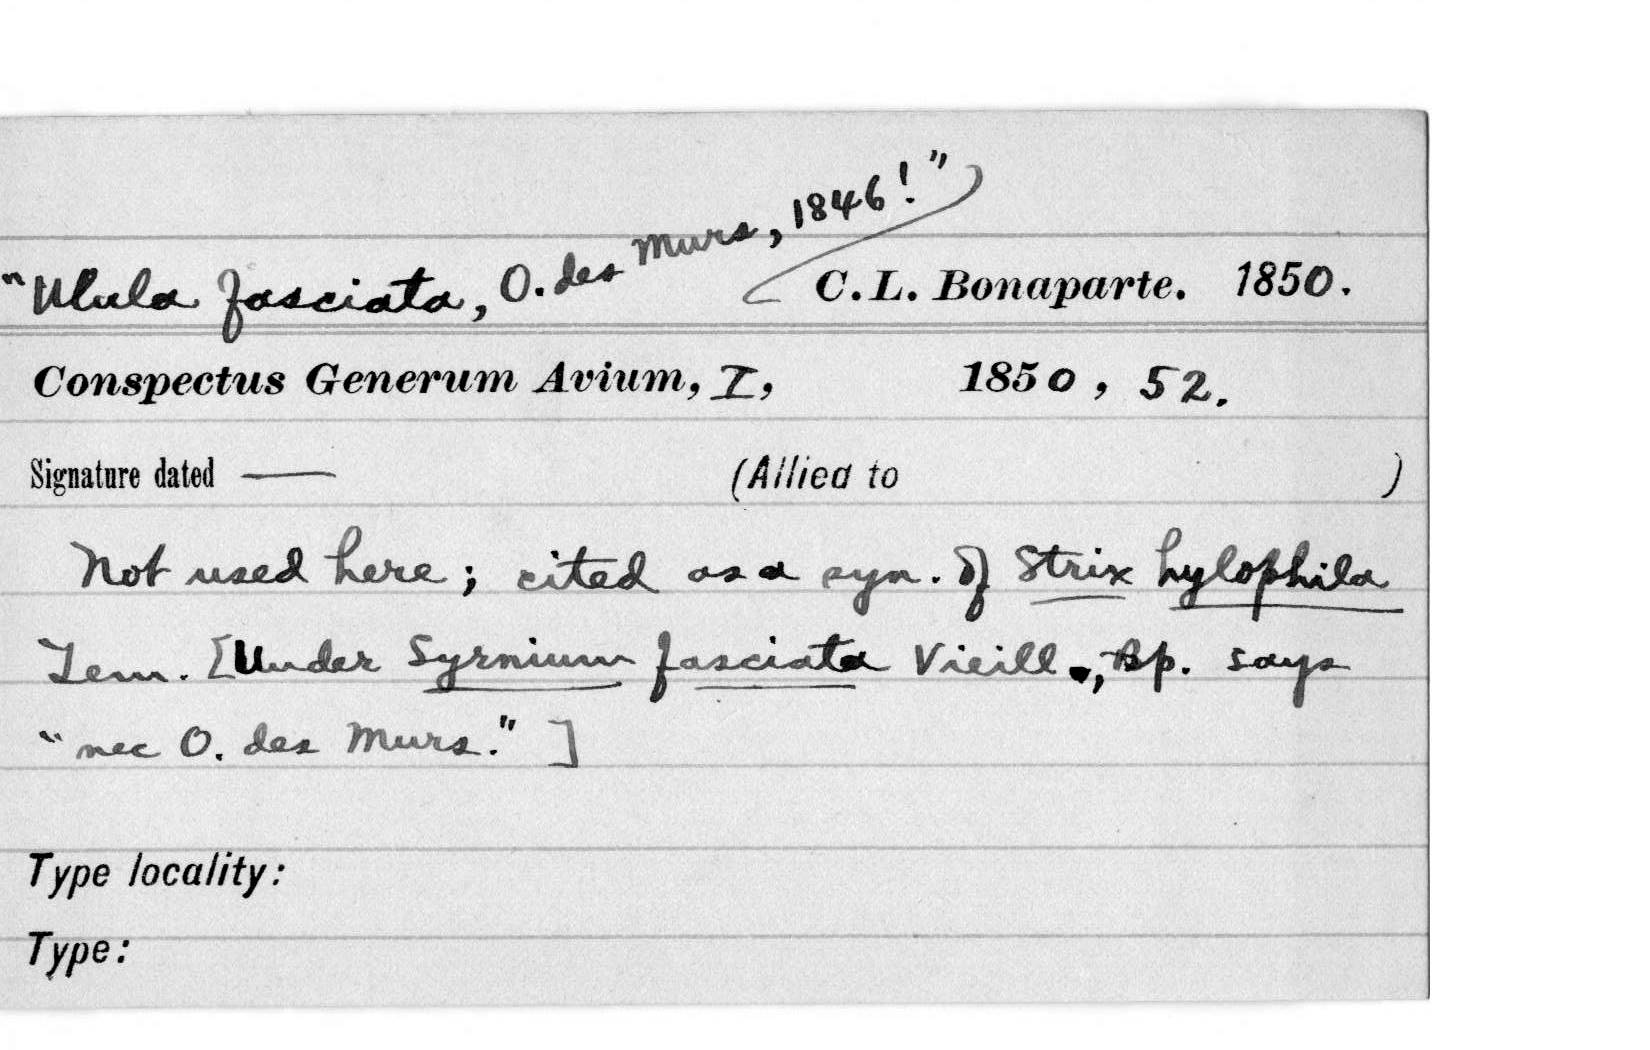 "Ulula fasciata, O. des Murs, 1846!"
C. L. Bonaparte. 1850.
Conspectus Generum Avium, I, 1850, 52.
Signature dated — (Allied to )
Not used here; cited as a syn. of Strix hylophila
Tem. [Under Syrnium fasciata Vieill., Bp. says
"nec O. des Murs."]
Type locality:
Type: